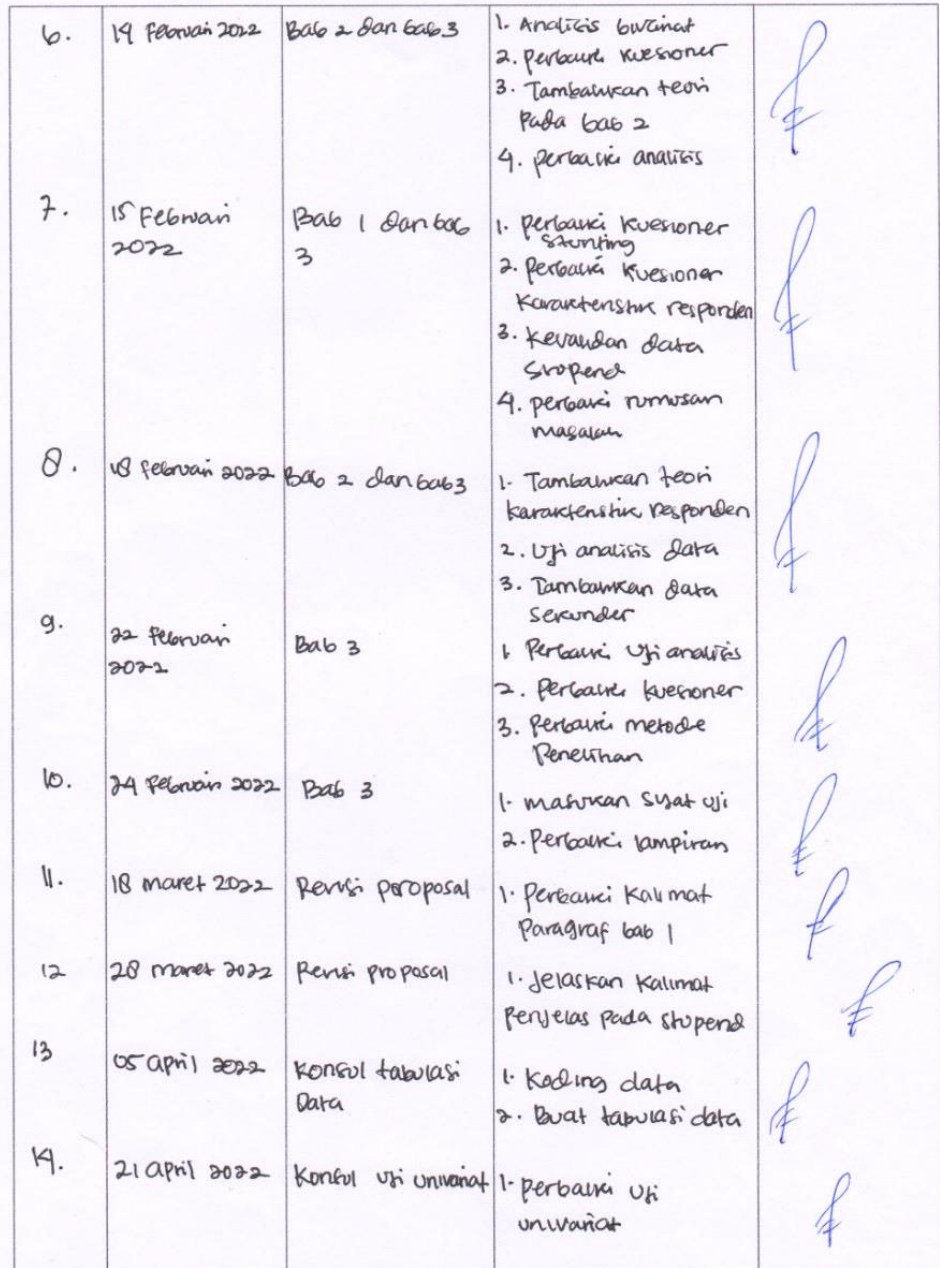 6. 14 Februari 2022 Bab 2 dan bab 3 1. Analisis bivariat
2. perbaiki kuesioner
3. Tambahkan teori
pada bab 2
4. perbaiki analisis
7. 15 Februari Bab 1 dan bab 1. perbaiki kuesioner
2022 3 stunting
2. perbaiki kuesioner
karakteristik responden
3. Kevalidan data
stupend
4. perbaiki rumusan
masalah
8. 18 februari 2022 Bab 2 dan bab 3 1. Tambahkan teori
karakteristik responden
2. Uji analisis data
3. Tambahkan data
sekunder
9. 22 februari Bab 3 1. Perbaiki uji analisis
2022
2. Perbaiki kuesioner
3. Perbaiki metode
Penelitian
10. 24 februari 2022 Bab 3 1. masukan syat uji
2. Perbaiki lampiran
11. 18 maret 2022 Revisi poroposal 1. Perbaiki kalimat
paragraf bab 1
12 28 maret 2022 Revisi proposal 1. Jelaskan kalimat
penjelas pada stupend
13 05 april 2022 Konsul tabulasi 1. Koding data
Data 2. Buat tabulasi data
14. 21 april 2022 Konsul uji univariat 1. perbaiki uji
univariat